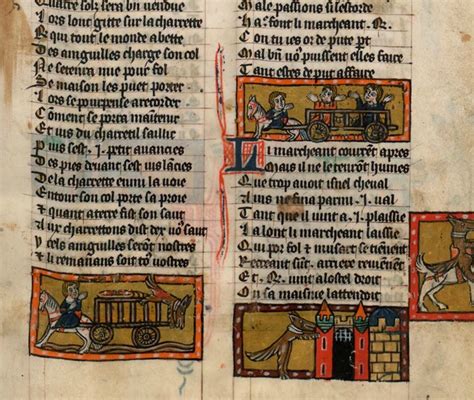 Quatre solz sera bn vendue
Lors lonc gitte sur la charrette
Et qui tout le monde abette
Des anguilles charge son col
Ne se tenra mie pour fol
Se maison les puet porter
Lors se pourpense a recorder
Cōment se porra maītenir
Et uis du charretil saillir
Puis sest .i. petit auancies
Des pies deuant sest vis lācies
De la charrete enmi la uoie
Entour son col porte sa proie
Et quant a terre fist son saut
Aur charrettons dist dex vo saut
y cels anguilles serōt nostres
Et li remanans soit tout vostres
Male passion si lestorde
Has font li marcheant
Con tu ies or de pute pt
Mal bn vo puissent elles faire
Tant estes de put affaire
Li marcheant courēt apres
Mais il ne le tenrōt humes
Que trop auoit isnel cheual
Ains ne fina parmi .i. val
Tant que il uint a .i. plaissie
La lont li marcheant laissie
Qui por fol & musart se tienent
Recreant sūt arriere reuienēt
Et tant a lostel droit
Ou sa maisnie lattendoit